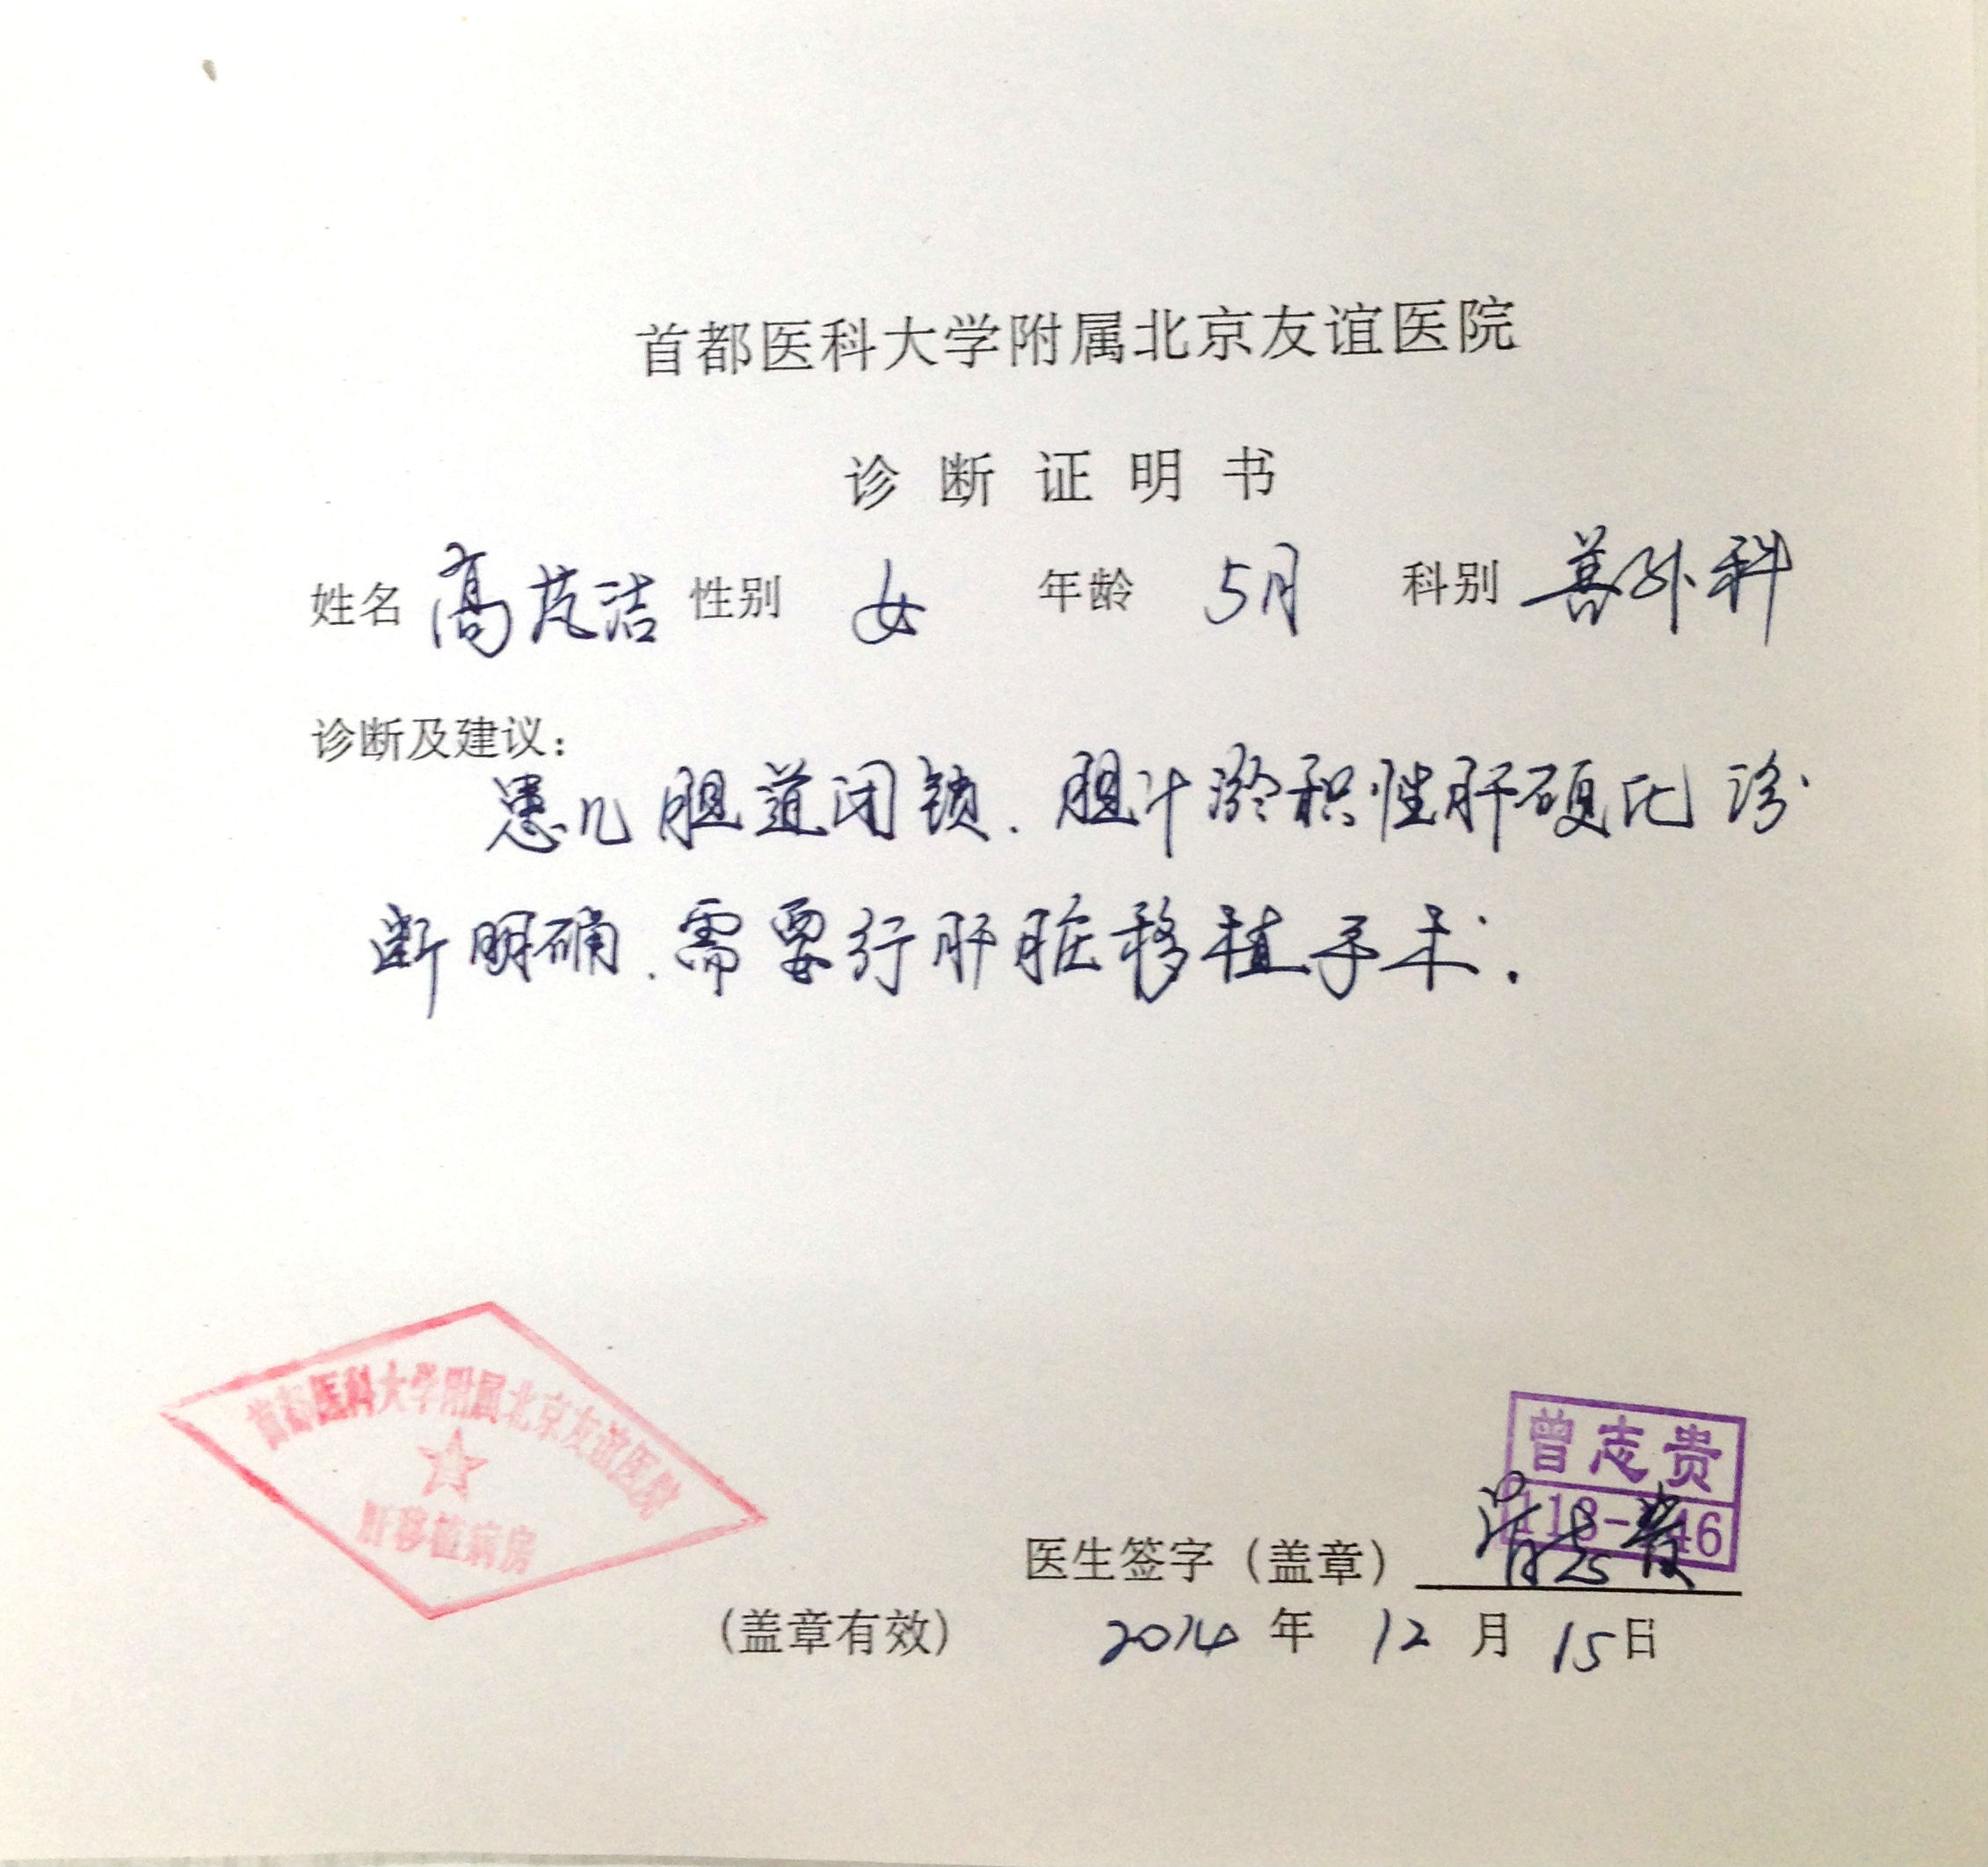 首都医科大学附属北京友谊医院
诊断证明书
姓名 高芃洁 性别 女 年龄 5月 科别 普外科
诊断及建议：
患儿胆道闭锁、胆汁淤积性肝硬化诊
断明确、需要行肝脏移植手术.
首都医科大学附属北京友谊医院
肝移植病房
曾志贵
医生签字（盖章） 曾志贵
（盖章有效） 2014 年 12 月 15 日